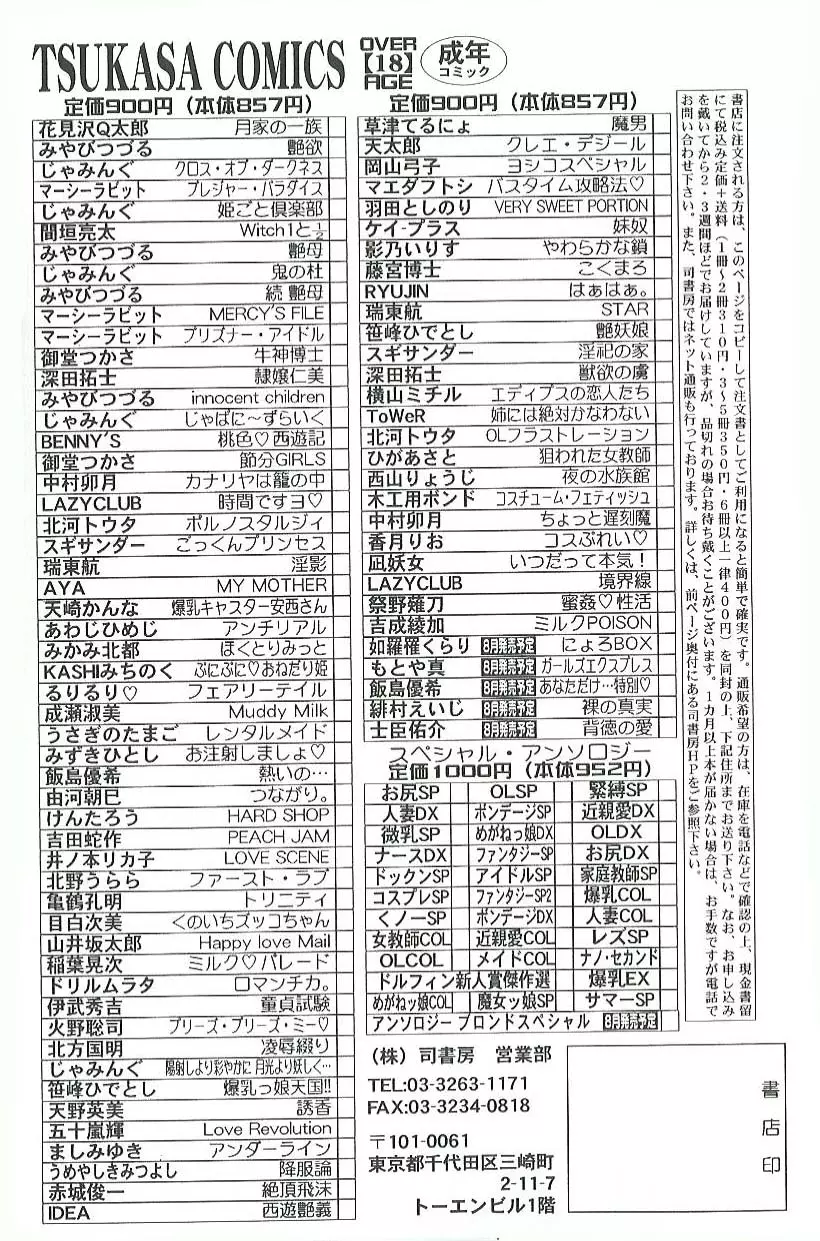 TSUKASA COMICS
OVER
【18】
AGE
成年
コミック
定価900円（本体857円）
花見沢Q太郎 月家の一族
みやびつづる 艶欲
じゃみんぐ クロス・オブ・ダークネス
マーシーラビット プレジャー・パラダイス
じゃみんぐ 姫ごと倶楽部
間垣亮太 Witch1と½
みやびつづる 艶母
じゃみんぐ 鬼の杜
みやびつづる 続 艶母
マーシーラビット MERCY'S FILE
マーシーラビット プリズナー・アイドル
御堂つかさ 牛神博士
深田拓士 隷嬢仁美
みやびつづる innocent children
じゃみんぐ じゃぱに〜ずらいく
BENNY'S 桃色♡西遊記
御堂つかさ 節分GIRLS
中村卯月 カナリヤは籠の中
LAZYCLUB 時間ですヨ♡
北河トウタ ポルノスタルジィ
スギサンダー ごっくんプリンセス
瑞東航 淫影
AYA MY MOTHER
天崎かんな 爆乳キャスター安西さん
あわじひめじ アンチリアル
みかみ北都 ほくとりみっと
KASHIみちのく ぷにぷに♡おねだり姫
るりるり♡ フェアリーテイル
成瀬淑美 Muddy Milk
うさぎのたまご レンタルメイド
みずきひとし お注射しましょ♡
飯島優希 熱いの…
由河朝巳 つながり。
けんたろう HARD SHOP
吉田蛇作 PEACH JAM
井ノ本リカ子 LOVE SCENE
北野うらら ファースト・ラブ
亀鶴孔明 トリニティ
目白次美 くのいちズッコちゃん
山井坂太郎 Happy love Mail
稲葉晃次 ミルク♡パレード
ドリルムラタ ロマンチカ。
伊武秀吉 童貞試験
火野聡司 プリーズ・プリーズ・ミー♡
北方国明 凌辱綴り
じゃみんぐ 陽射しより彩やかに 月光より妖しく…
笹峰ひでとし 爆乳っ娘天国!!
天野英美 誘香
五十嵐輝 Love Revolution
ましみゆき アンダーライン
うめやしきみつよし 降服論
赤城俊一 絶頂飛沫
IDEA 西遊艶義
定価900円（本体857円）
草津てるにょ 魔男
天太郎 クレエ・デジール
岡山弓子 ヨシコスペシャル
マエダフトシ バスタイム攻略法♡
羽田としのり VERY SWEET PORTION
ケイ-プラス 妹奴
影乃いりす やわらかな鎖
藤宮博士 こくまろ
RYUJIN はぁはぁ。
瑞東航 STAR
笹峰ひでとし 艶妖娘
スギサンダー 淫祀の家
深田拓士 獣欲の虜
横山ミチル エディプスの恋人たち
ToWeR 姉には絶対かなわない
北河トウタ OLフラストレーション
ひがあさと 狙われた女教師
西山りょうじ 夜の水族館
木工用ボンド コスチューム・フェティッシュ
中村卯月 ちょっと遅刻魔
香月りお コスぷれい♡
凪妖女 いつだって本気！
LAZYCLUB 境界線
祭野薙刀 蜜姦♡性活
吉成綾加 ミルクPOISON
如羅權くらり 8月発売予定 にょろBOX
もとや真 8月発売予定 ガールズエクスプレス
飯島優希 8月発売予定 あなただけ…特別♡
緋村えいじ 8月発売予定 裸の真実
士臣佑介 8月発売予定 背徳の愛
スペシャル・アンソロジー
定価1000円（本体952円）
お尻SP OLSP 緊縛SP
人妻DX ボンデージSP 近親愛DX
微乳SP めがねっ娘DX OLDX
ナースDX ファンタジーSP お尻DX
ドックンSP アイドルSP 家庭教師SP
コスプレSP ファンタジーSP2 爆乳COL
くノーSP ボンデージDX 人妻COL
女教師COL 近親愛COL レズSP
OLCOL メイドCOL ナノ・セカンド
ドルフィン新人賞傑作選 爆乳EX
めがねッ娘COL 魔女ッ娘SP サマーSP
アンソロジー ブロンドスペシャル 8月発売予定
書店に注文される方は、このページをコピーして注文書としてご利用になると簡単で確実です。通販希望の方は、在庫を電話などで確認の上、現金書留
にて税込み定価＋送料（1冊〜2冊310円・3〜5冊350円・6冊以上一律400円）を同封の上、下記住所までお送り下さい。なお、お申し込み
を戴いてから2・3週間ほどでお届けしていますが、品切れの場合お待ち戴くことがございます。1カ月以上本が届かない場合は、お手数ですが電話で
お問い合わせ下さい。また、司書房ではネット通販も行っております。詳しくは、前ページ奥付にある司書房HPをご参照下さい。
（株）司書房 営業部
TEL:03-3263-1171
FAX:03-3234-0818
〒101-0061
東京都千代田区三崎町
2-11-7
トーエンビル1階
書店印